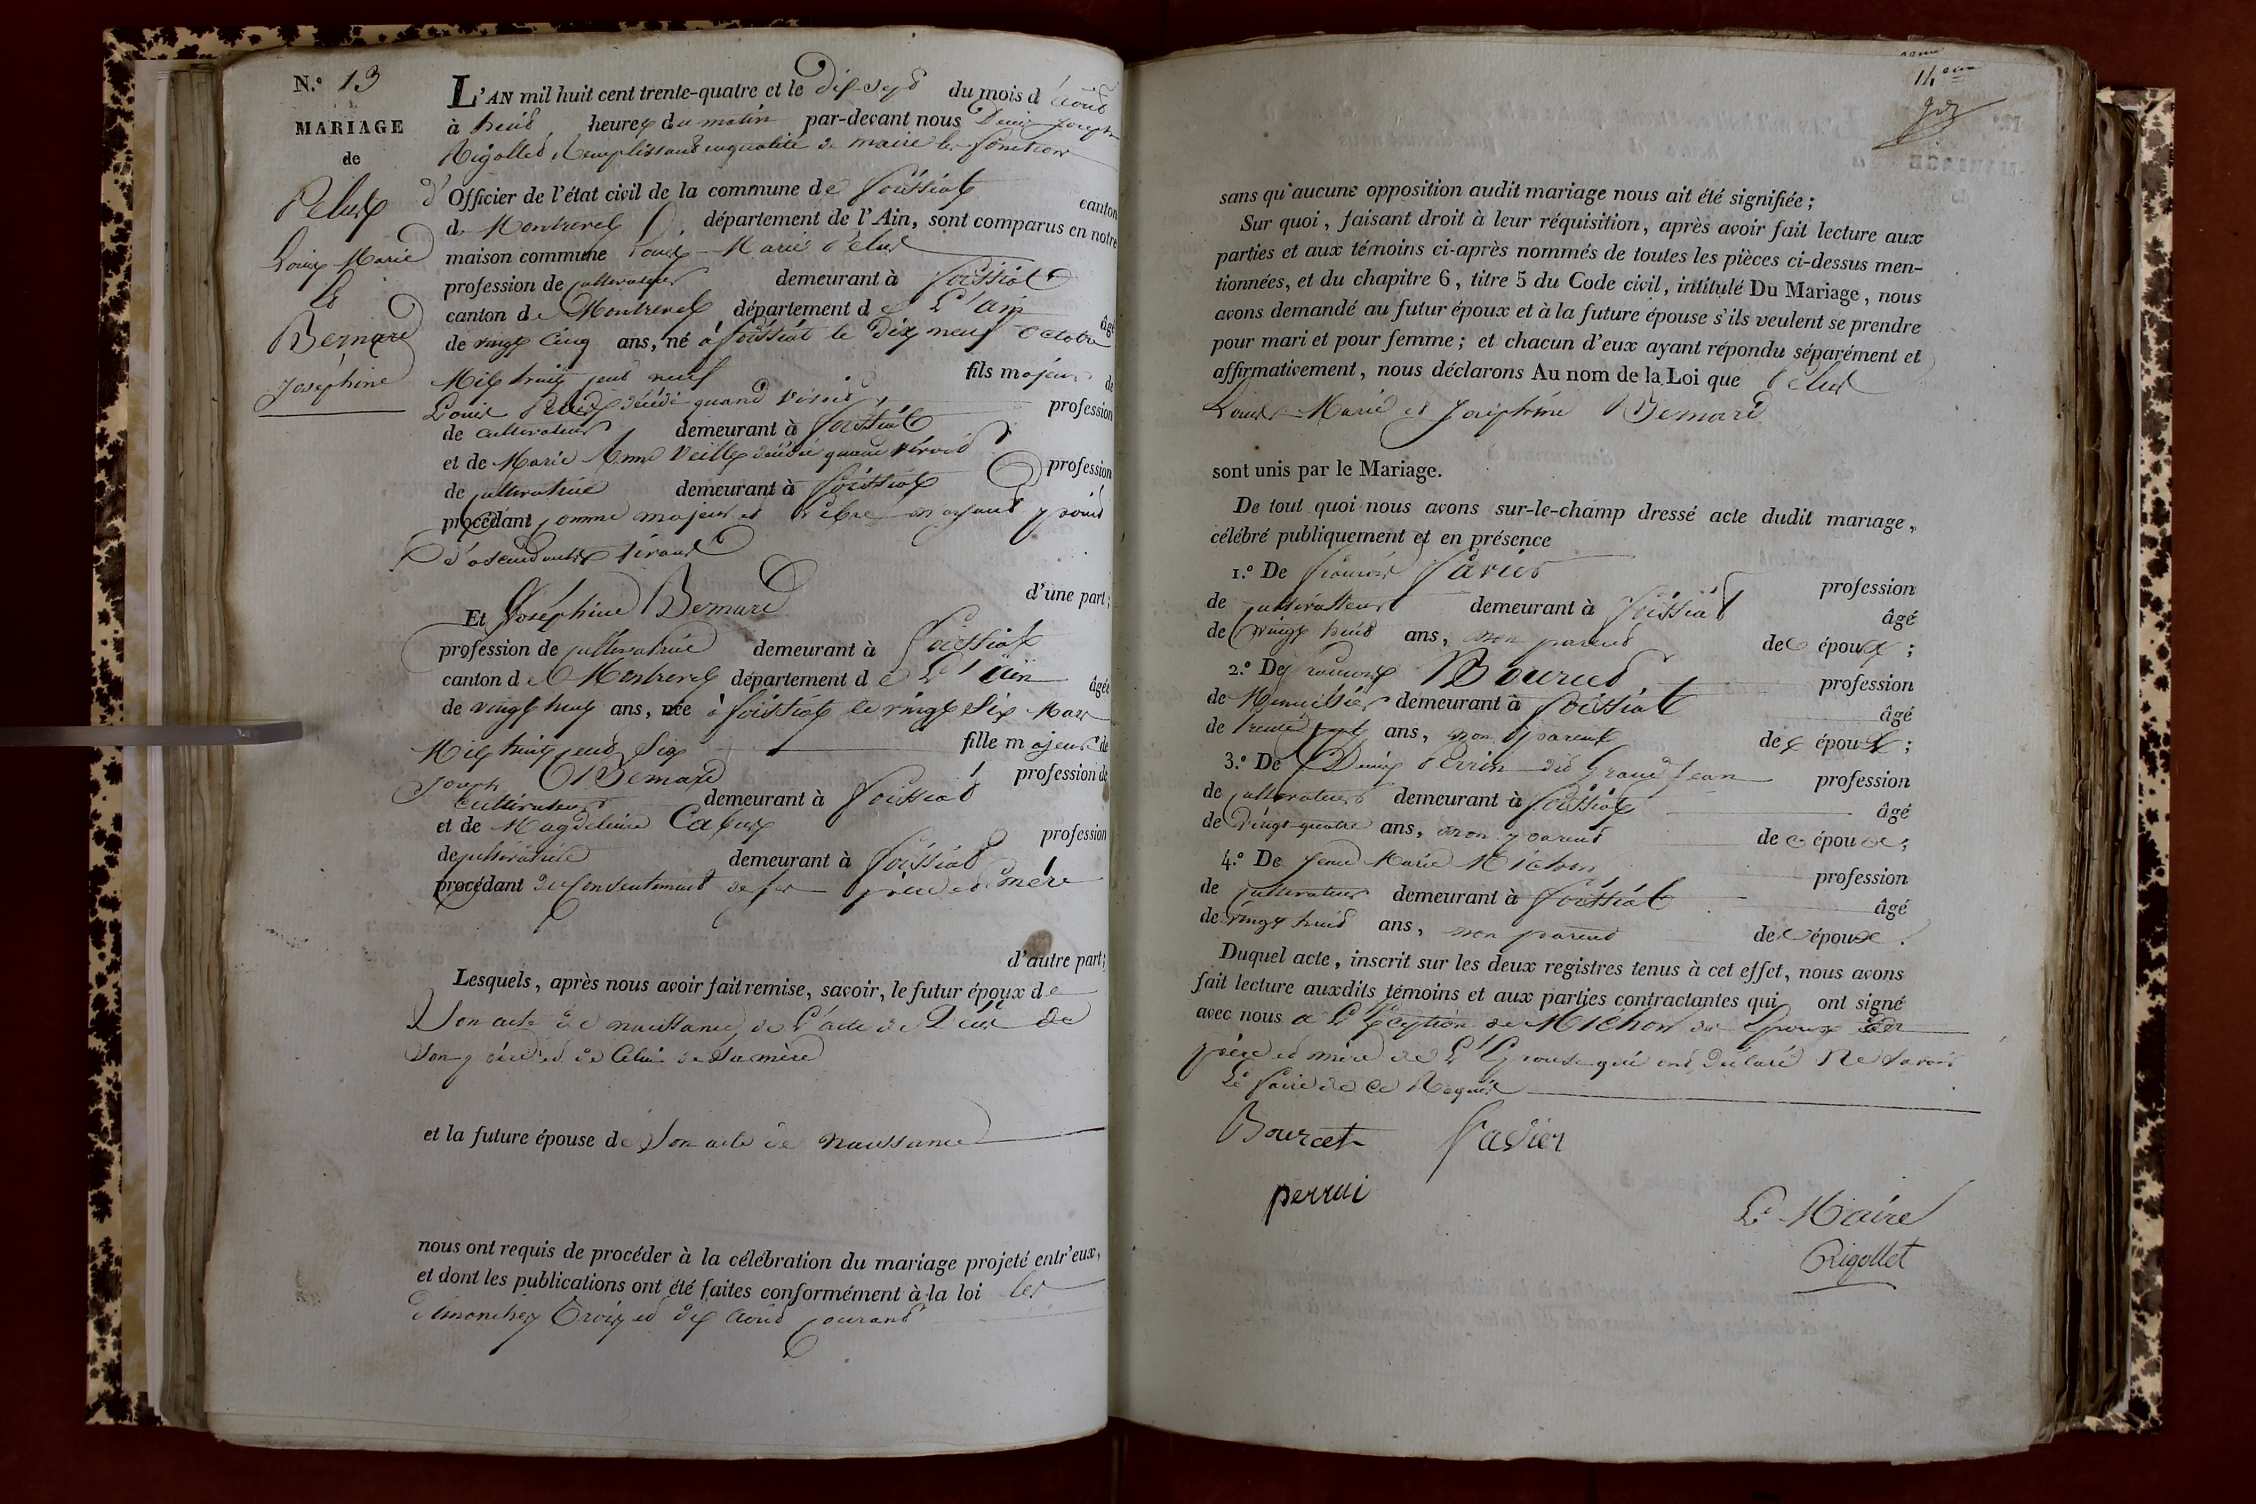 N.º 13
MARIAGE
de
Pelux
Louis Marie
Et
Bernard
Joséphine
L'AN mil huit cent trente-quatre et le dix-sept du mois d'août
à huit heures du matin par-devant nous Denis Joseph
Rigollet Remplissant en qualité de maire les fonctions
d'Officier de l'état civil de la commune de Foissiat canton
de Montrevel département de l'Ain, sont comparus en notre
maison commune Louis Marie Pelux
profession de cultivateur demeurant à Foissiat
canton de Montrevel département de L'ain âgé
de vingt cinq ans, né à foissiat le dix neuf Octobre
Mil huit cent neuf fils majeur de
Louis Pelux décédé quand vivait profession
de cultivateur demeurant à foissiat
et de Marie Anne Veille décédée quand vivait profession
de cultivatrice demeurant à foissiat
procédant comme majeur et libre n'ayant point
d'ascendants vivant
d'une part;
Et Joséphine Bernard
profession de cultivatrice demeurant à foissiat
canton de Montrevel département de L'ain âgée
de vingt huit ans, née à foissiat le vingt Six Mars
Mil huit cent Six fille majeure de
Joseph Bernard profession de
cultivateur demeurant à foissiat
et de Magdeleine Cabux profession
de cultivatrice demeurant à foissiat
procédant du Consentement de ses père et mère
d'autre part;
Lesquels, après nous avoir fait remise, savoir, le futur époux de
Son acte de naissance, de L'acte de décès de
son père et de Celui de Sa mère
et la future épouse de Son acte de naissance
nous ont requis de procéder à la célébration du mariage projeté entr'eux,
et dont les publications ont été faites conformément à la loi les
dimanches Trois et dix août courant
14eme
sans qu'aucune opposition audit mariage nous ait été signifiée;
Sur quoi, faisant droit à leur réquisition, après avoir fait lecture aux
parties et aux témoins ci-après nommés de toutes les pièces ci-dessus men-
tionnées, et du chapitre 6, titre 5 du Code civil, intitulé Du Mariage, nous
avons demandé au futur époux et à la future épouse s'ils veulent se prendre
pour mari et pour femme; et chacun d'eux ayant répondu séparément et
affirmativement, nous déclarons Au nom de la Loi que Pelux
Louis Marie et Joséphine Bernard
sont unis par le Mariage.
De tout quoi nous avons sur-le-champ dressé acte dudit mariage,
célébré publiquement et en présence
1.º De françois favier profession
de cultivateur demeurant à foissiat âgé
de vingt huit ans, non parent de époux;
2.º De françois Bourcet profession
de Menuisier demeurant à foissiat âgé
de Trente sept ans, non parent de époux;
3.º De Denis Perrin dit Grand Jean profession
de cultivateur demeurant à foissiat âgé
de vingt-quatre ans, non parent de épouse;
4.º De Jean Marie Michon profession
de cultivateur demeurant à foissiat âgé
de vingt huit ans, non parent de épouse.
Duquel acte, inscrit sur les deux registres tenus à cet effet, nous avons
fait lecture auxdits témoins et aux parties contractantes qui ont signé
avec nous a L'Exeption de Michon des Epoux des
père et mère de L'Epouse qui ont déclaré Ne savoir
Le faire de ce Requis
Bourcet favier
perrin
Le Maire
Rigollet